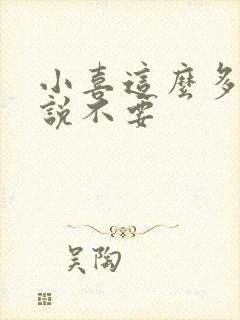 小喜這麼多
說不要
吴陶